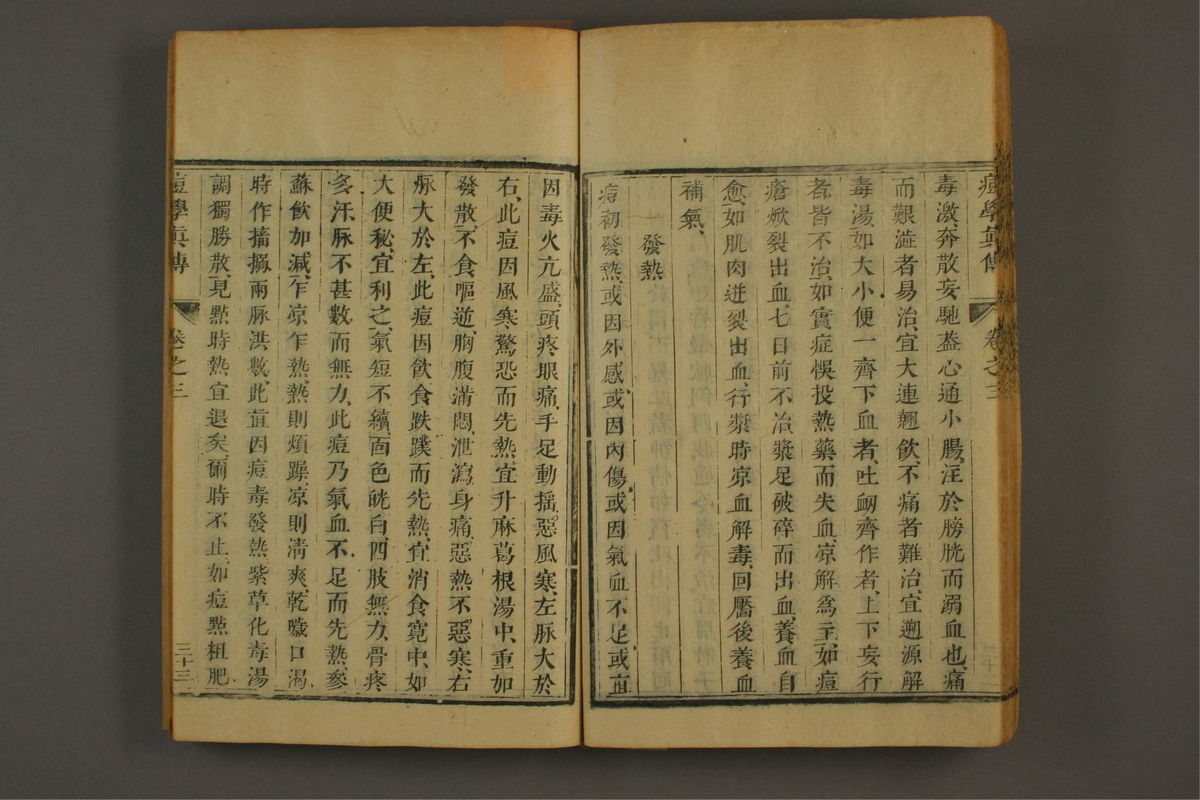 痘學真傳 卷之三
毒激奔散妄馳葢心通小腸注於膀胱而溺血也痛
而艱澁者易治宜大連翹飲不痛者難治宜遡源解
毒湯如大小便一齊下血者吐衂齊作者上下妄行
者皆不治如實症悞投熱藥而失血凉解爲主如痘
瘡焮裂出血七日前不治漿足破碎而出血養血自
愈如肌肉迸裂出血行漿時凉血解毒回靨後養血
補氣
發熱
痘初發熱或因外感或因內傷或因氣血不足或直
因毒火亢盛頭疼眼痛手足動搖惡風寒左脉大於
右此痘因風寒驚恐而先熱宜升麻葛根湯中重如
發散不食嘔逆胸腹滿悶泄瀉身痛惡熱不惡寒右
脉大於左此痘因飲食跌蹼而先熱宜消食寛中如
大便秘宜利之氣短不續面色㿠白四肢無力骨疼
多汗脉不甚數而無力此痘乃氣血不足而先熱參
蘇飲加減乍凉乍熱熱則煩躁凉則清爽乾噦口渴
時作搐搦兩脉洪數此直因痘毒發熱紫草化毒湯
調獨勝散見點時熱宜退矣爾時不止如痘點粗肥
痘學真傳 卷之三 三十三